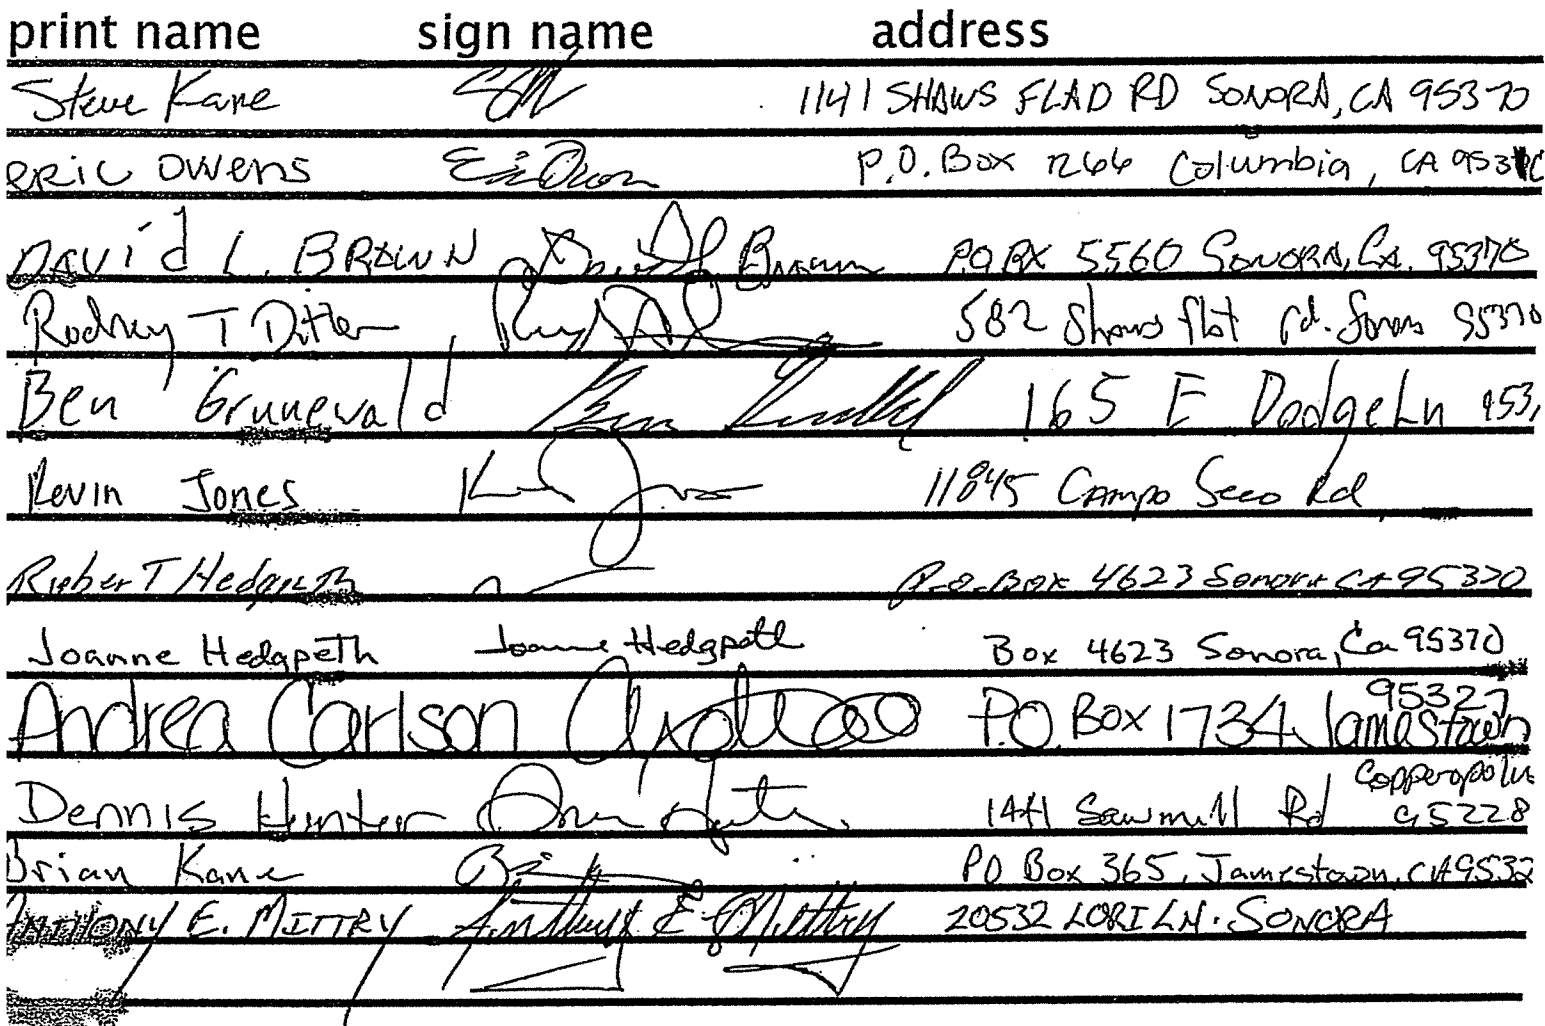 print name sign name address
Steve Kane 1141 SHAWS FLAD RD SONORA, CA 95370
eric owens Eric Owens P.O. Box 1266 Columbia, CA 953
DAVid L. BROWN David L Brown P.O. BX 5560 SONORA, CA. 95370
Rodney T Ditler 582 Shaws flat rd. Sonora 95370
Ben Grunewald Ben Grunewald 165 E Dodge Ln 953
Kevin Jones 11845 Campo Seco Rd
Rober T Hedgpeth P.O. Box 4623 Sonora CA 95370
Joanne Hedgpeth Joanne Hedgpeth Box 4623 Sonora, Ca 95370
Andrea Carlson P.O. Box 1734 Jamestown 95327
Dennis Hunter 1441 Sawmill Rd Copperopolis 95228
Brian Kane PO Box 365, Jamestown, CA 9532
ANTHONY E. MITTRY Anthony E Mittry 20532 LORI LN. SONORA